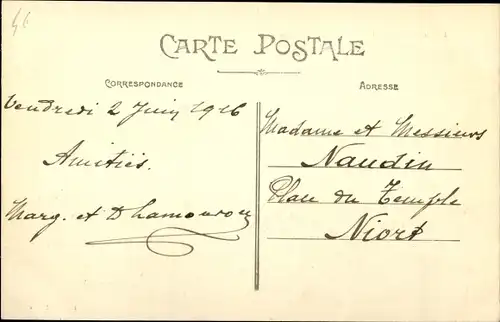 CARTE POSTALE
CORRESPONDANCE
ADRESSE
Vendredi 2 Juin 1916
Amitiés.
Marg. et D
Madame et Messieurs
Naudin
Place du Temple
Niort